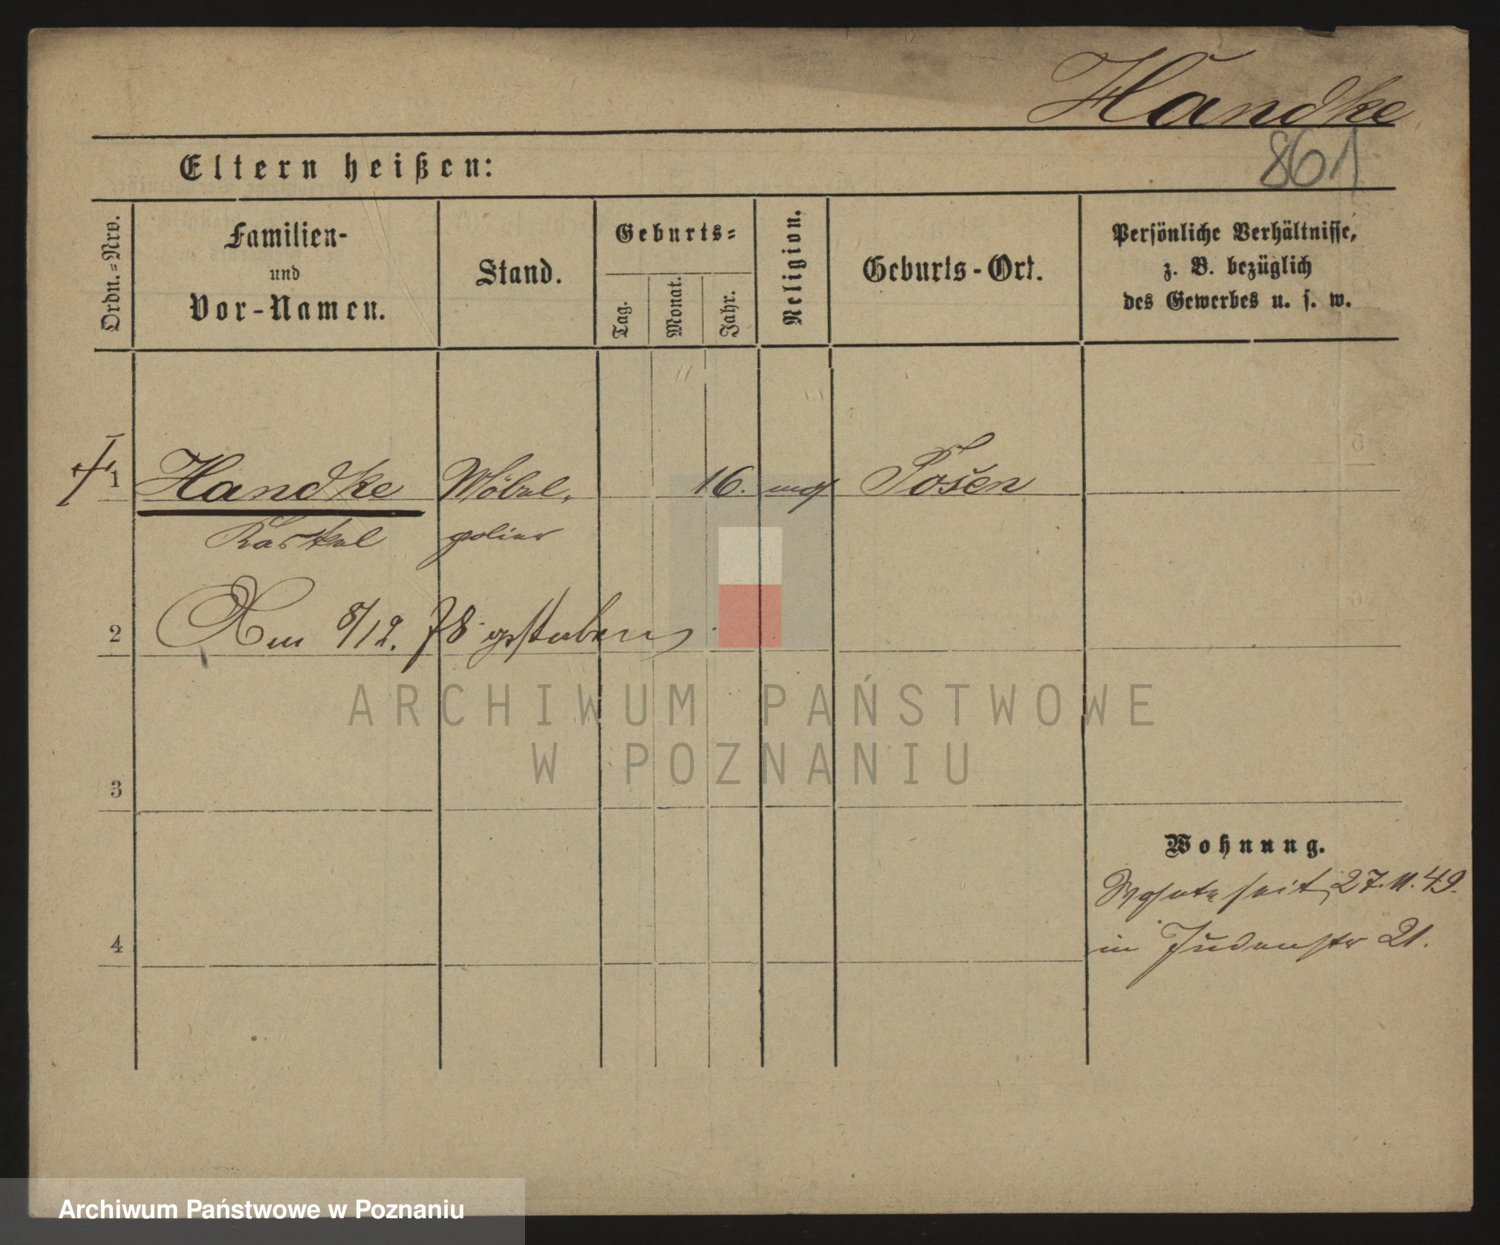 Handke
861
Eltern heißen:
Ordn.=Nro.
Familien-
und
Vor-Namen.
Stand.
Geburts=
Tag.
Monat.
Jahr.
Religion.
Geburts-Ort.
Persönliche Verhältnisse,
z. B. bezüglich
des Gewerbes u. s. w.
1 Handke Möbel- 16. mos Posen
Kaskel polirer
2 Am 8/12. 78 gestorben
ARCHIWUM PAŃSTWOWE
W POZNANIU
3
Wohnung.
seit 27.11.49.
4 in Judenstr 21.
Archiwum Państwowe w Poznaniu